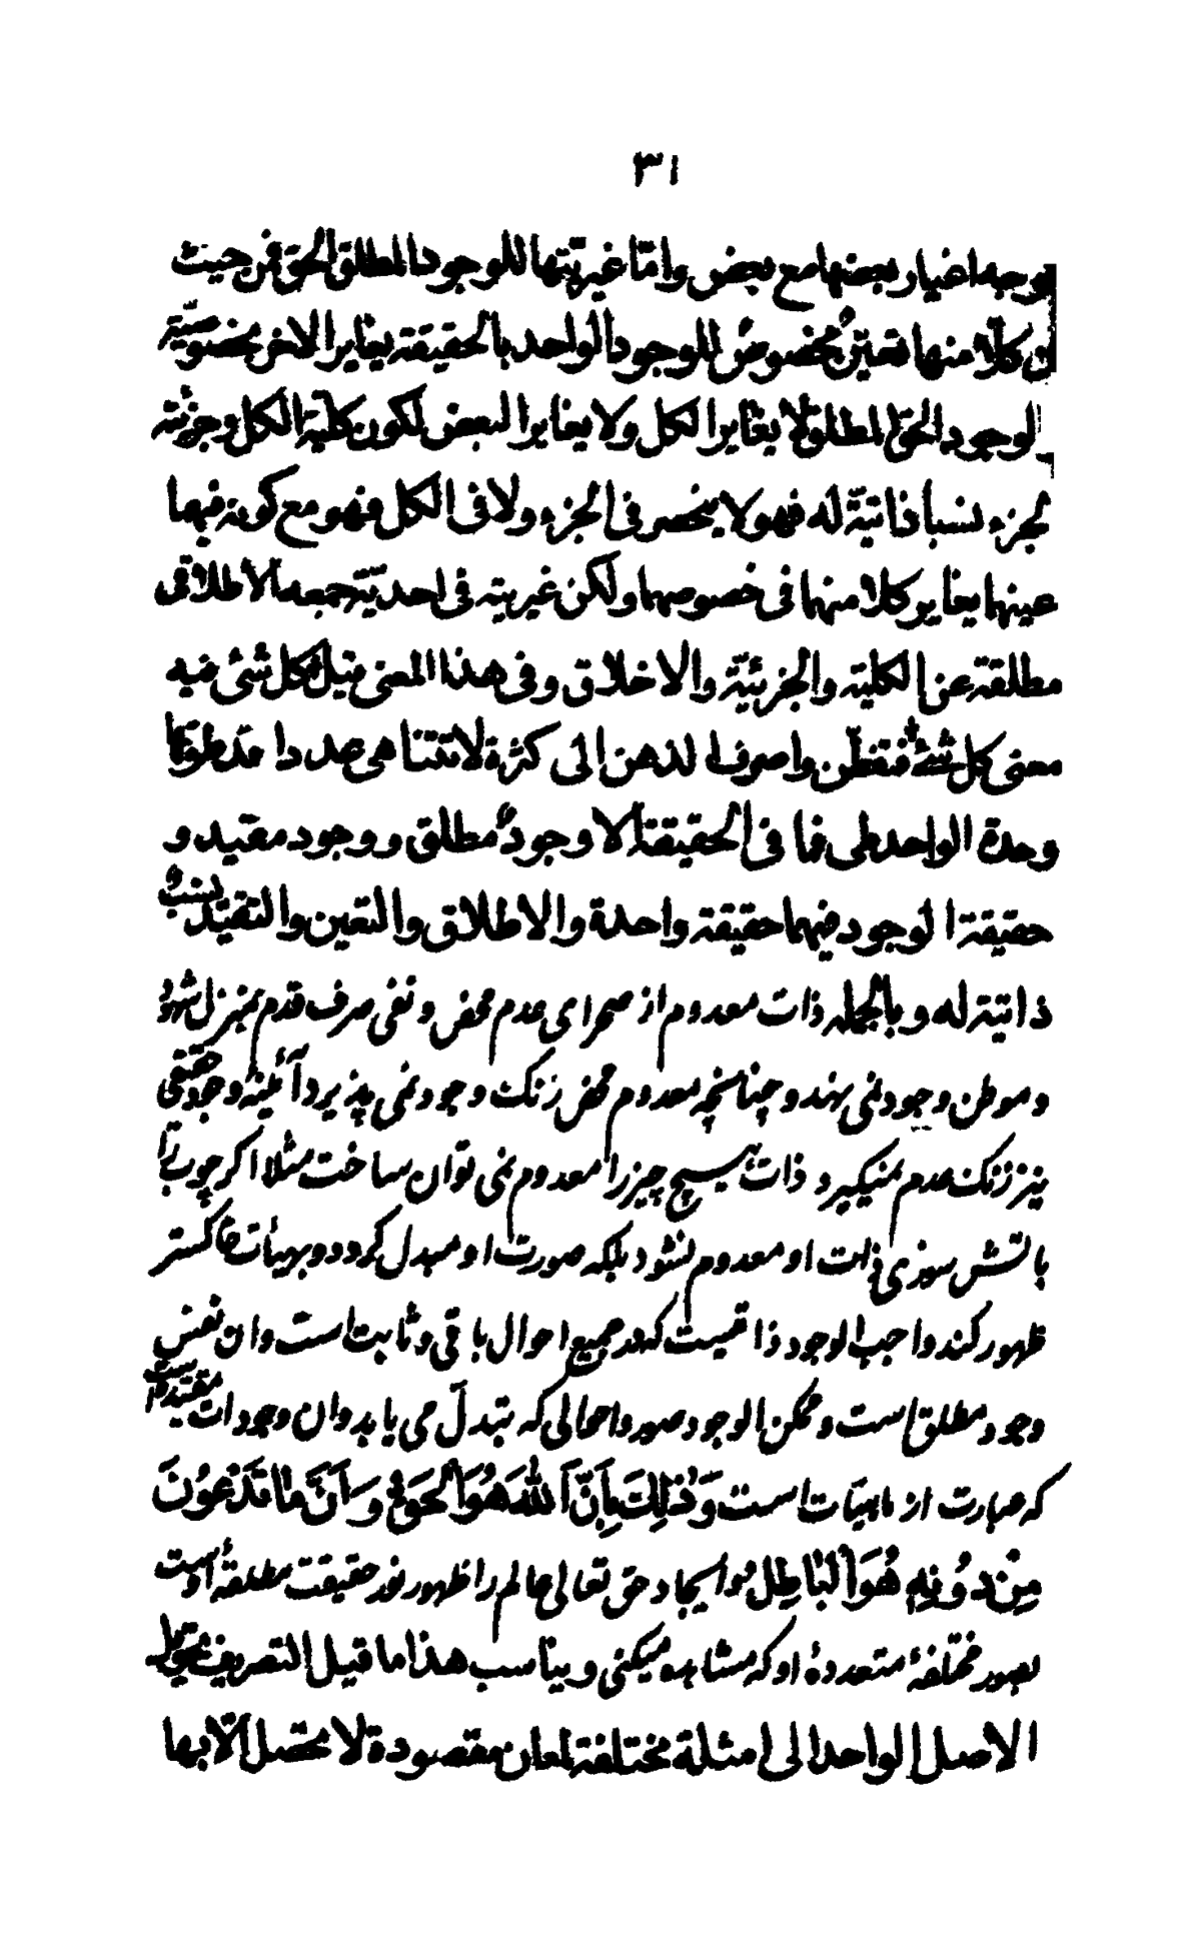 ٣١
بوجه اغيار بعضها مع بعض واما غيريّتها للوجود المطلق الحق فمن حيث
ان كلّا منها تعيّنٌ مخصوصٌ للوجود الواحد بالحقيقة يغاير الاخر بخصوصيّة
الوجود الحق المطلق لا يغاير الكل ولا يغاير البعض لكون كلية الكل وجزئية
الجزء نسبا ذاتيّة له فهو لا ينحصر فى الجزء ولا فى الكل فهو مع كونه فيها
عينها يغاير كلا منهما فى خصوصهما ولكن غيريته فى احديّة جمعه الاطلاقى
مطلقة عن الكلية والجزئيّة والاخلاق وفى هذا المعنى قيل لكل شئ فيه
معنى كل شئ فتفطّن واصرف الذهن الى كثرة لا تتناهى عددا قد طوتها
وحدة الواحد طى فما فى الحقيقة الا وجودٌ مطلق ووجود مقيد و
حقيقة الوجود فيهما حقيقة واحدة والاطلاق والتعين والتقيّد نسبٌ
ذاتية له وبالجمله ذات معدوم از صحراى عدم محض و نفى صرف قدم بمنزل شهود
و موطن وجود نمى نهد و چنانچه معدوم محض رنگ وجود نمى پذيرد آئينهٔ وجود حقيقى
نيز رنگ عدم نميگيرد و ذات هيچ چيز را معدوم نمى توان ساخت مثلا اگر چوب را
باتش سوزى ذات او معدوم نشود بلكه صورت او مبدل گردد و بهيئات خاكستر
ظهور كند واجب الوجود ذاتيست كه در جميع احوال باقى و ثابت است و ان نفس
وجود مطلق است و ممكن الوجود صور و احوالى كه تبدّل مى يابد و ان وجودات مقيّده است
كه عبارت از ماهيّات است وَذٰلِكَ بِأَنَّ اللّٰهَ هُوَ الْحَقُّ وَأَنَّ مَا تَدْعُونَ
مِنْ دُونِهِ هُوَ الْبَاطِلُ موايجاد حق تعالى عالم را ظهور نور حقيقت مطلقهٔ اوست
بصور مختلفهٔ متعددهٔ او كه مشاهده ميكنى ويناسب هذا ما قيل التصريف تحويل
الاصل الواحد الى امثلة مختلفة لمعان مقصودة لا تحصل الّا بها